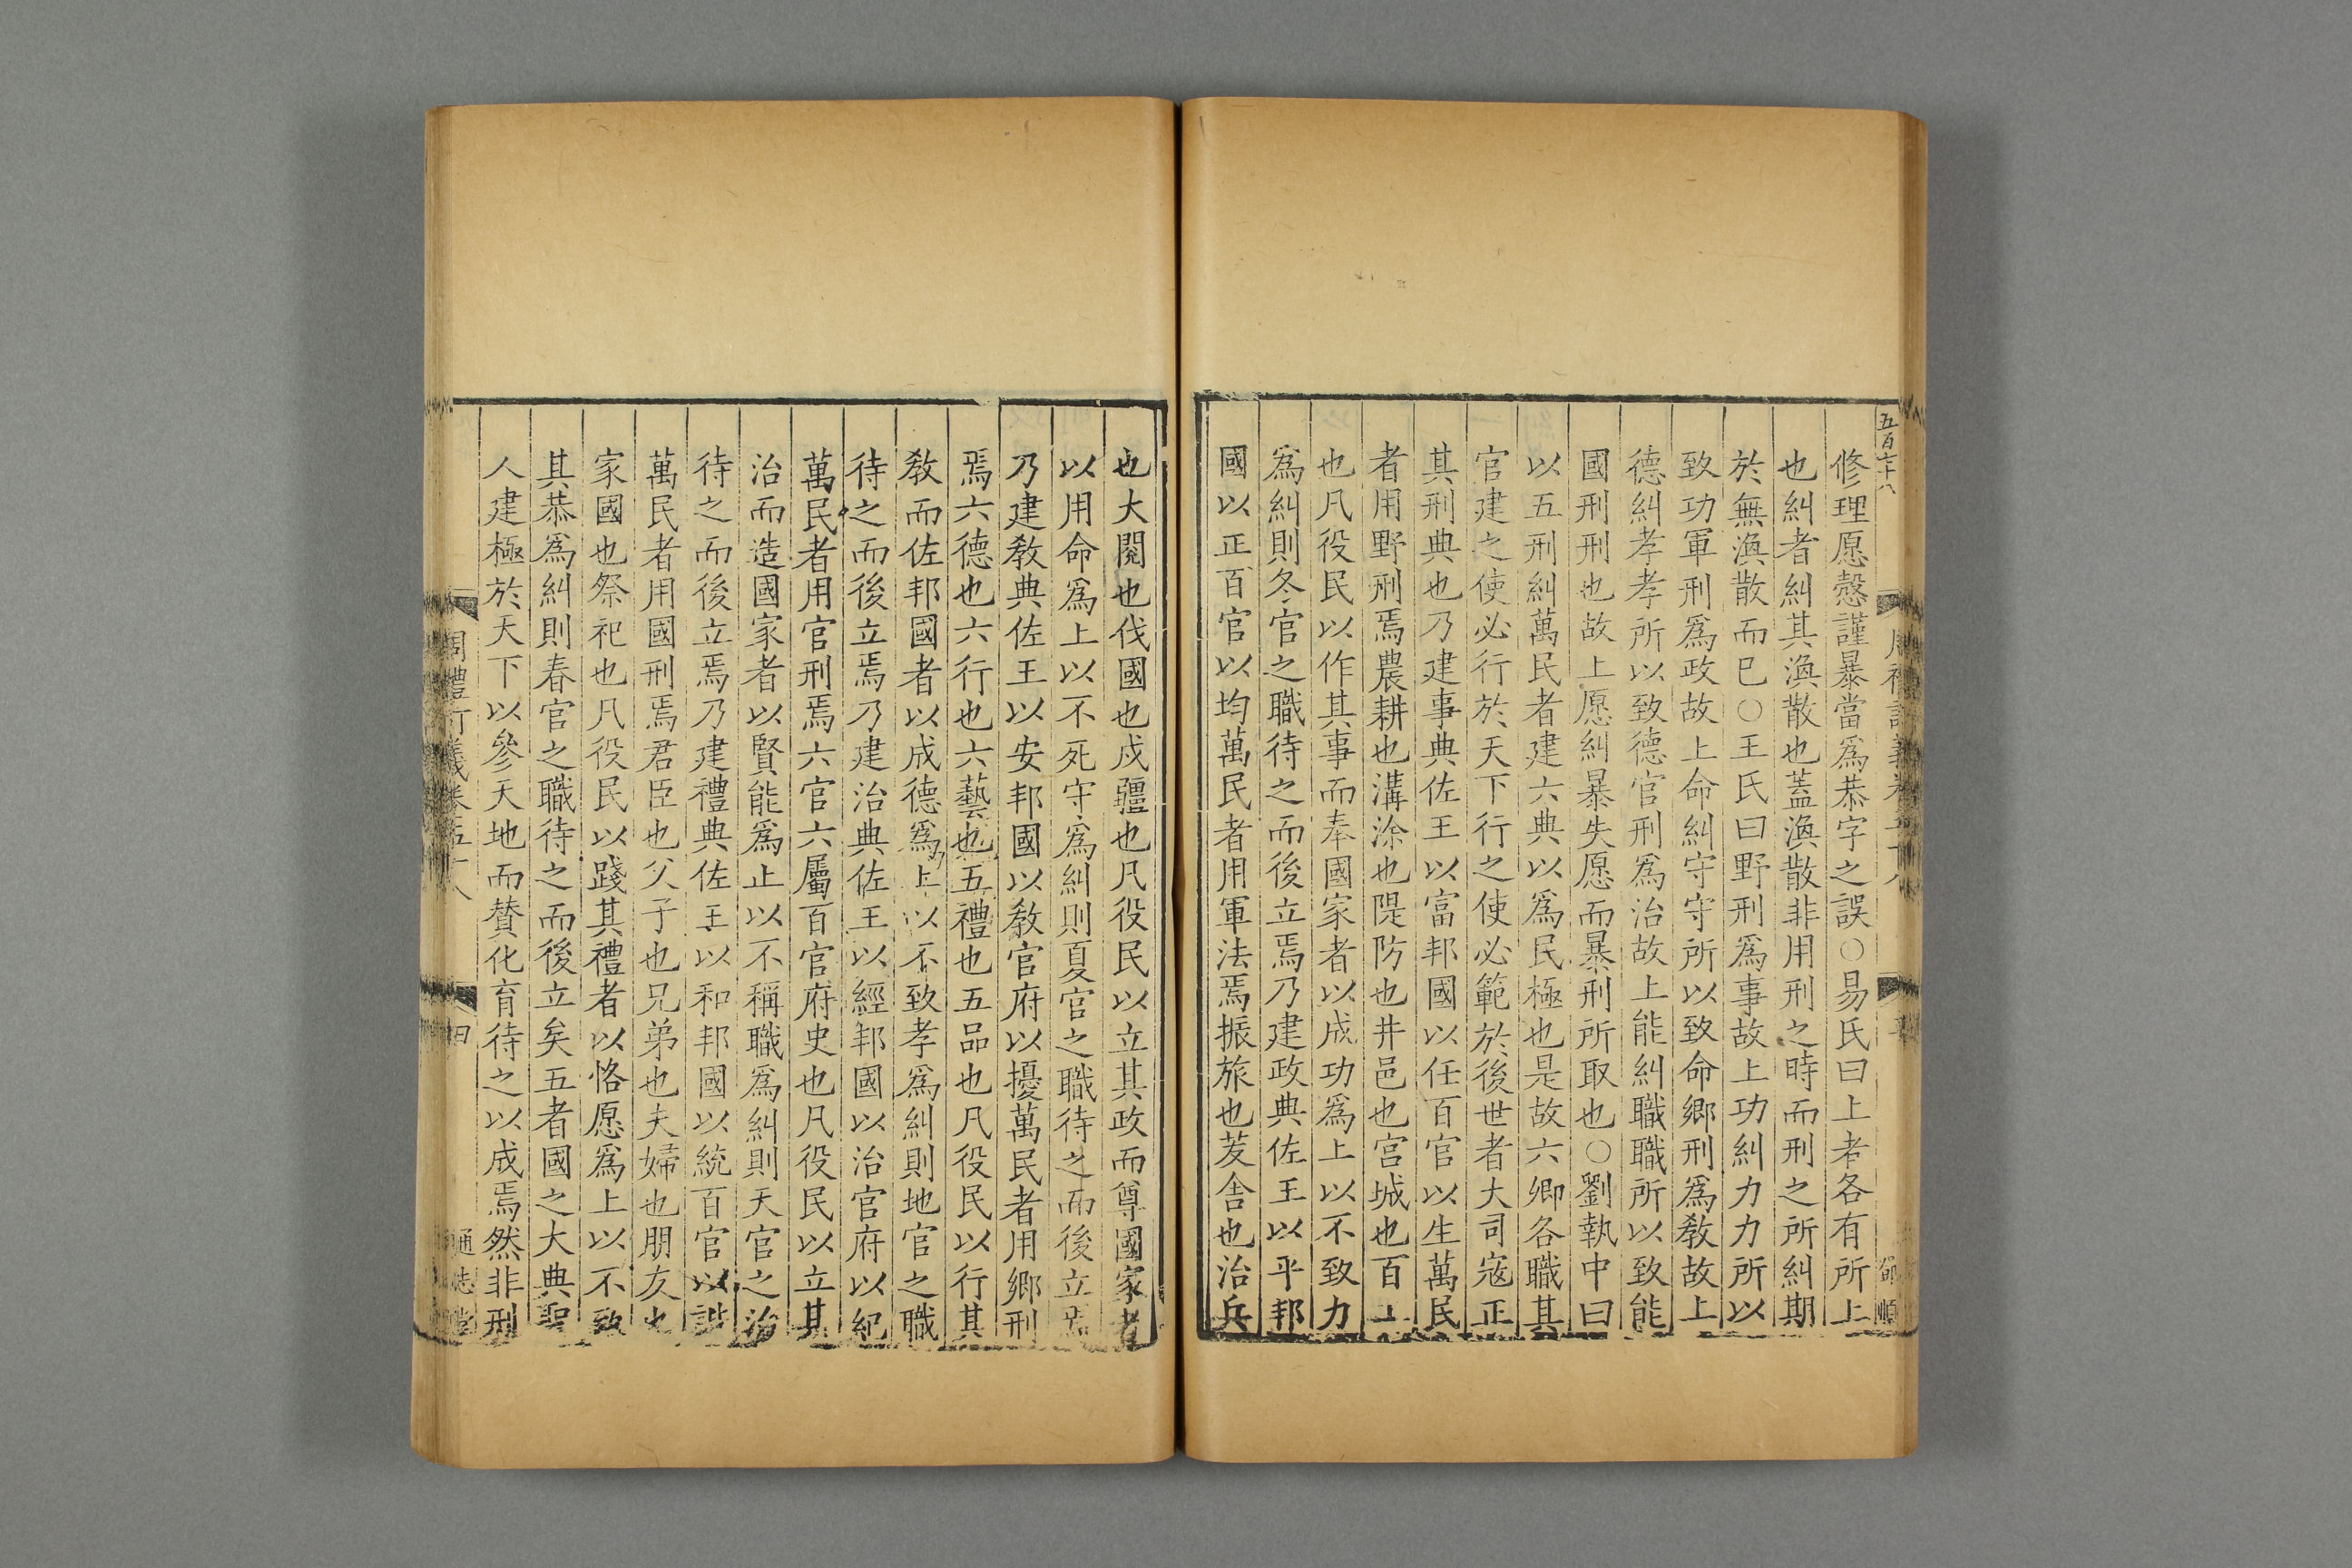 五百七十八
修理愿慤謹暴當爲恭字之誤○易氏曰上者各有所上
也糾者糾其渙散也蓋渙散非用刑之時而刑之所糾期
於無渙散而已○王氏曰野刑爲事故上功糾力力所以
致功軍刑爲政故上命糾守守所以致命鄉刑爲敎故上
德糾孝孝所以致德官刑爲治故上能糾職職所以致能
國刑刑也故上愿糾暴失愿而暴刑所取也○劉執中曰
以五刑糾萬民者建六典以爲民極也是故六卿各職其
官建之使必行於天下行之使必範於後世者大司寇正
其刑典也乃建事典佐王以富邦國以任百官以生萬民
者用野刑焉農耕也溝涂也隄防也井邑也宫城也百工
也凡役民以作其事而奉國家者以成功爲上以不致力
爲糾則冬官之職待之而後立焉乃建政典佐王以平邦
國以正百官以均萬民者用軍法焉振旅也茇舍也治兵
也大閱也伐國也戍疆也凡役民以立其政而尊國家者
以用命爲上以不死守爲糾則夏官之職待之而後立焉
乃建敎典佐王以安邦國以敎官府以擾萬民者用鄉刑
焉六德也六行也六藝也五禮也五品也凡役民以行其
敎而佐邦國者以成德爲上以不致孝爲糾則地官之職
待之而後立焉乃建治典佐王以經邦國以治官府以紀
萬民者用官刑焉六官六屬百官府史也凡役民以立其
治而造國家者以賢能爲止以不稱職爲糾則天官之治
待之而後立焉乃建禮典佐王以和邦國以統百官以諧
萬民者用國刑焉君臣也父子也兄弟也夫婦也朋友也
家國也祭祀也凡役民以踐其禮者以恪愿爲上以不致
其恭爲糾則春官之職待之而後立矣五者國之大典聖
人建極於天下以參天地而賛化育待之以成焉然非刑
周禮訂義卷五十八
四
通志堂